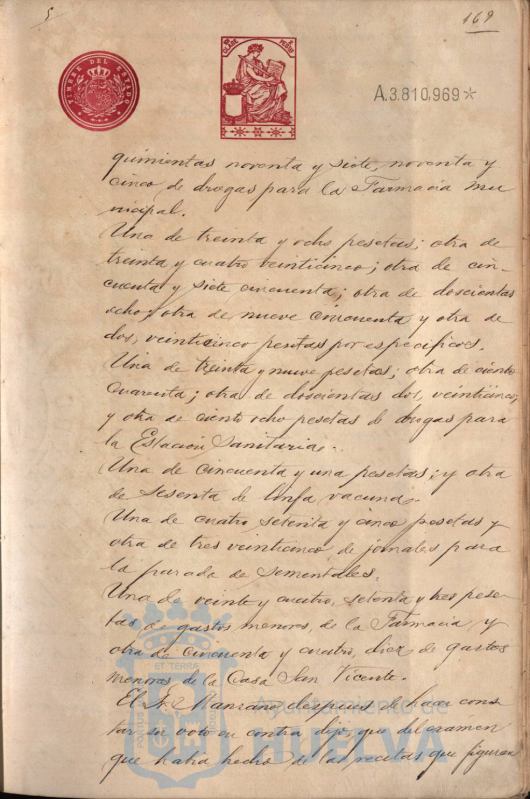 5
169
TIMBRE DEL ESTADO
A.3.810,969*
quinientas noventa y siete, noventa y
cinco, de drogas para la Farmacia mu
nicipal.
Una de treinta y ocho pesetas; otra de
treinta y cuatro veinticinco; otra de cin-
cuenta y siete cincuenta; otra de doscientas
ocho; otra de nueve cincuenta y otra de
dos, veinticinco pesetas por específicos.
Una de treinta y nueve pesetas; otra de ciento
cuarenta; otra de doscientas dos, veinticinco;
y otra de ciento ocho pesetas de drogas para
la Estación Sanitaria.
Una de cincuenta y una pesetas; y otra
de sesenta de linfa vacuna.
Una de cuatro setenta y cinco pesetas y
otra de tres veinticinco, de jornales para
la parada de sementales.
Una de veinte y cuatro, setenta y tres pese-
tas de gastos menores, de la Farmacia, y
otra de cincuenta y cuatro, diez de gastos
menores de la Casa San Vicente.
El Sr. Manzano después de hacer cons
tar su voto en contra dijo, que del exámen
que había hecho de las recetas que figuran
ET TERRÆ
Ayuntamiento de
HUELVA